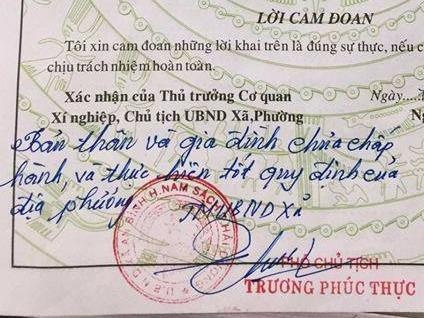 LỜI CAM ĐOAN
Tôi xin cam đoan những lời khai trên là đúng sự thực, nếu c
chịu trách nhiệm hoàn toàn.
Xác nhận của Thủ trưởng Cơ quan
Ngày....
Xí nghiệp, Chủ tịch UBND Xã,Phường
Ng
Bản thân và gia đình chưa chấp
hành, và thực hiện tốt quy định của
địa phương
TM UBND Xã
U.B.N.D XÃ AN BÌNH H.NAM SÁCH
PHÓ CHỦ TỊCH
TRƯƠNG PHÚC THỰC